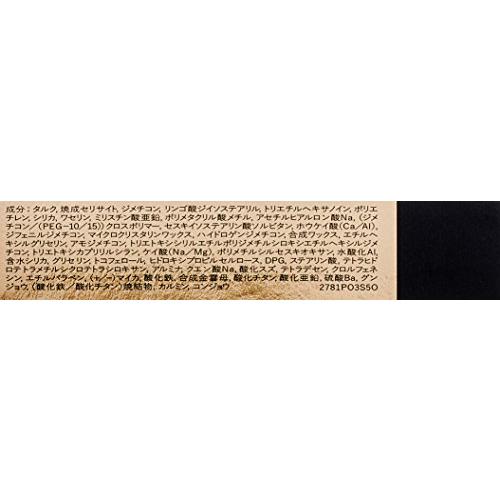 成分：タルク, 焼成セリサイト, ジメチコン, リンゴ酸ジイソステアリル, トリエチルヘキサノイン, ポリエ
チレン, シリカ, ワセリン, ミリスチン酸亜鉛, ポリメタクリル酸メチル, アセチルヒアルロン酸Na, (ジメ
チコン／(PEG-10／15))クロスポリマー, セスキイソステアリン酸ソルビタン, ホウケイ酸(Ca／Al),
ジフェニルジメチコン, マイクロクリスタリンワックス, ハイドロゲンジメチコン, 合成ワックス, エチルヘ
キシルグリセリン, アモジメチコン, トリエトキシシリルエチルポリジメチルシロキシエチルヘキシルジメ
チコン, トリエトキシカプリリルシラン, ケイ酸(Na／Mg), ポリメチルシルセスキオキサン, 水酸化Al,
含水シリカ, グリセリン, トコフェロール, ヒドロキシプロピルセルロース, DPG, ステアリン酸, テトラヒド
ロテトラメチルシクロテトラシロキサン, アルミナ, クエン酸Na, 酸化スズ, テトラデセン, クロルフェネ
シン, エチルパラベン, (＋／－)マイカ, 酸化鉄, 合成金雲母, 酸化チタン, 酸化亜鉛, 硫酸Ba, グン
ジョウ, (酸化鉄／酸化チタン)焼結物, カルミン, コンジョウ
2781PO3S5O